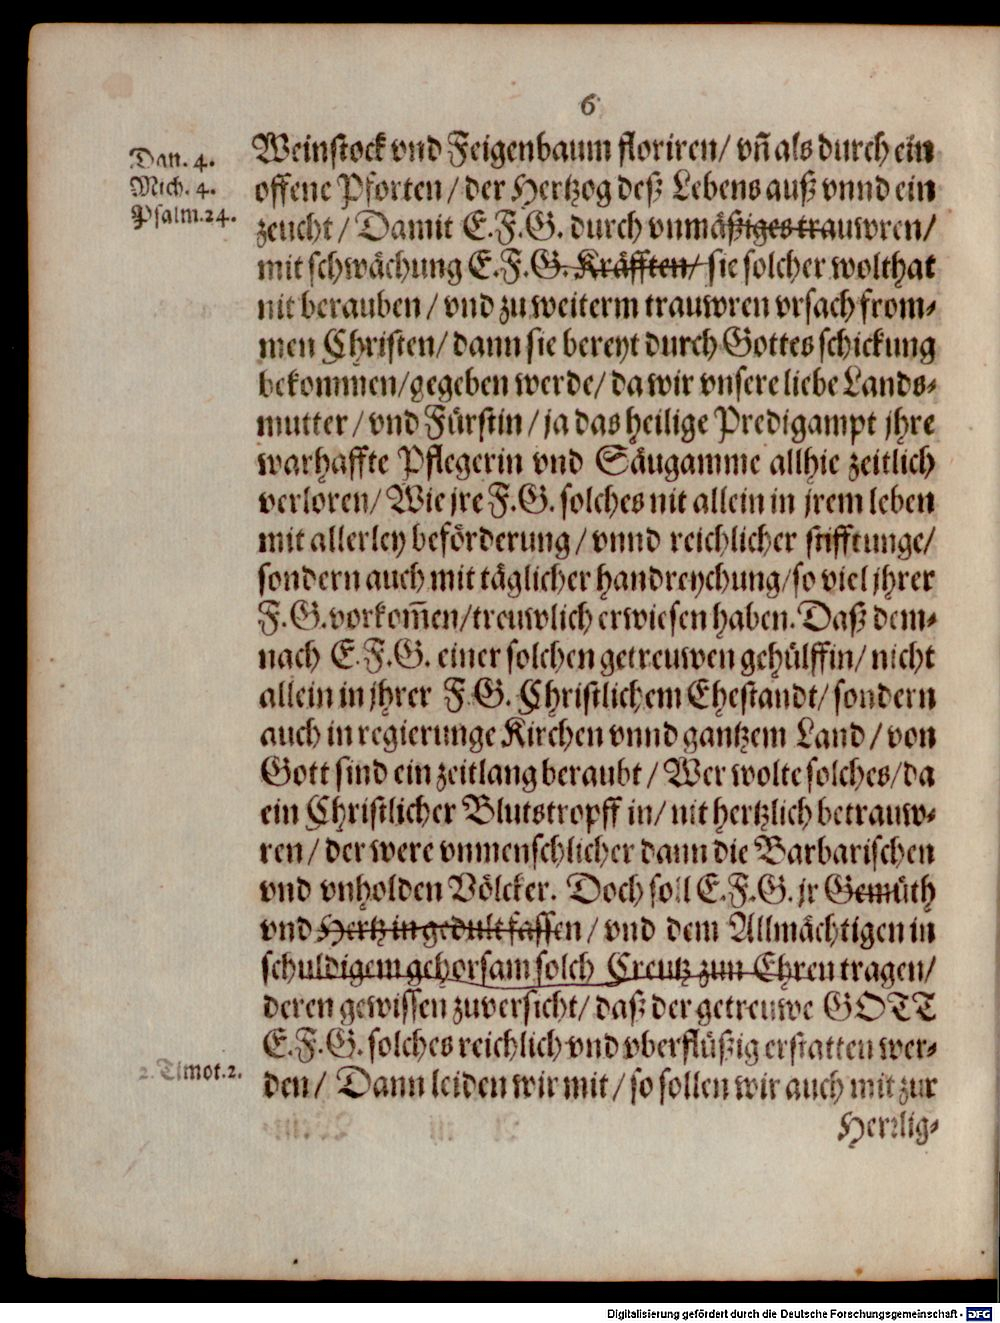 6
Dan. 4.
Mich. 4.
Psalm. 24.
Weinstock vnd Feigenbaum floriren/ vñ als durch ein
offene Pforten/ der Hertzog deß Lebens auß vnnd ein
zeucht/ Damit E.F.G. durch vnmäßiges trauwren/
mit schwächung E.F.G. Kräfften/ sie solcher wolthat
nit berauben/ vnd zu weiterm trauwren vrsach from-
men Christen/ dann sie bereyt durch Gottes schickung
bekommen/ gegeben werde/ da wir vnsere liebe Lands-
mutter/ vnd Fürstin/ ja das heilige Predigampt jhre
warhaffte Pflegerin vnd Säugamme allhie zeitlich
verloren/ Wie jre F.G. solches nit allein in jrem leben
mit allerley beförderung/ vnnd reichlicher stifftunge/
sondern auch mit täglicher handreychung/ so viel jhrer
F.G. vorkom̃en/ treuwlich erwiesen haben. Daß dem-
nach E.F.G. einer solchen getreuwen gehülffin/ nicht
allein in jhrer F.G. Christlichem Ehestandt/ sondern
auch in regierunge Kirchen vnnd gantzem Land/ von
Gott sind ein zeitlang beraubt/ Wer wolte solches/ da
ein Christlicher Blutstropff in/ nit hertzlich betrauw-
ren/ der were vnmenschlicher dann die Barbarischen
vnd vnholden Völcker. Doch soll E.F.G. jr Gemüth
vnd Hertz in gedult fassen/ vnd dem Allmächtigen in
schuldigem gehorsam solch Creutz zun Ehren tragen/
deren gewissen zuversicht/ daß der getreuwe GOTT
E.F.G. solches reichlich vnd vberflüßig erstatten wer-
2. Timot. 2.
den/ Dann leiden wir mit/ so sollen wir auch mit zur
Herrlig-
Digitalisierung gefördert durch die Deutsche Forschungsgemeinschaft - DFG